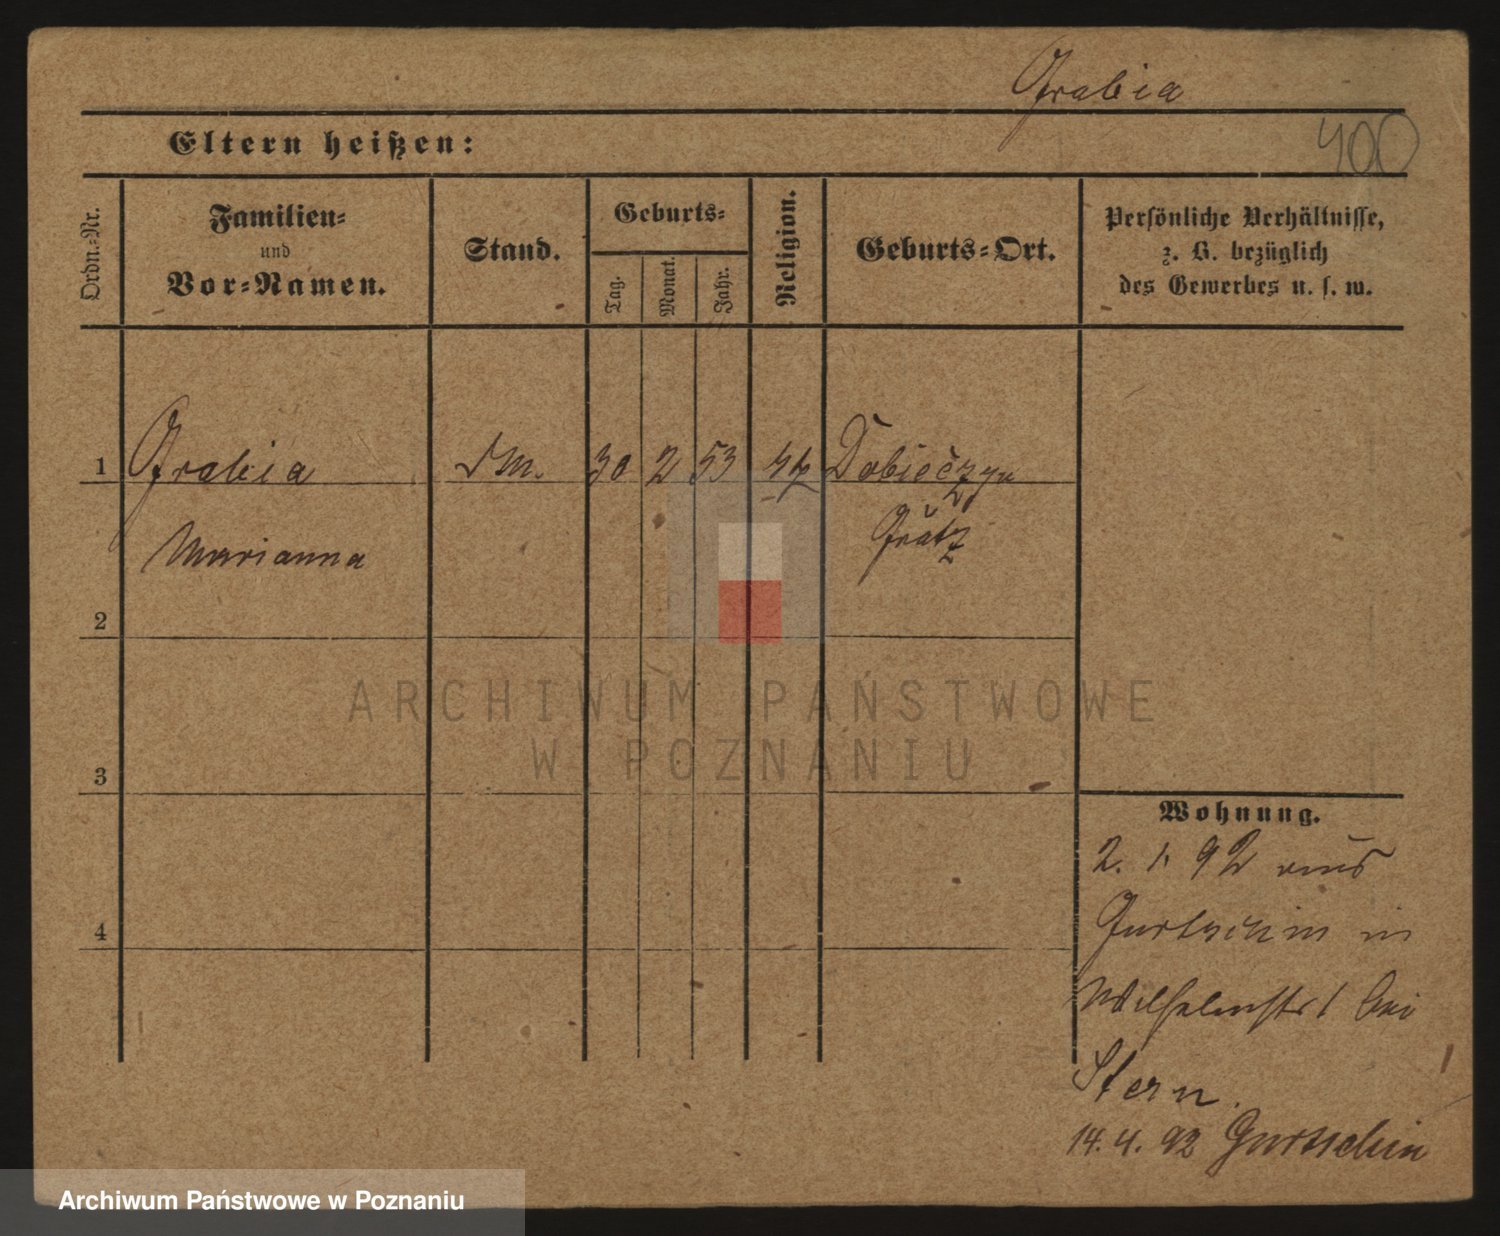 Grabia
Eltern heißen:
400
Ordn.-Nr.
Familien-
und
Vor-Namen.
Stand.
Geburts-
Tag.
Monat.
Jahr.
Religion.
Geburts-Ort.
Persönliche Verhältnisse,
z. B. bezüglich
des Gewerbes u. s. w.
1 Grabia DM. 30 2 53 Dobieczyn
Marianna Grätz
2
3
4
ARCHIWUM PAŃSTWOWE
W POZNANIU
Wohnung.
2. 1. 92 aus
Gurtschin in
Wilhelmstr 1 bei
Stern.
14. 4. 92 Gurtschin
Archiwum Państwowe w Poznaniu